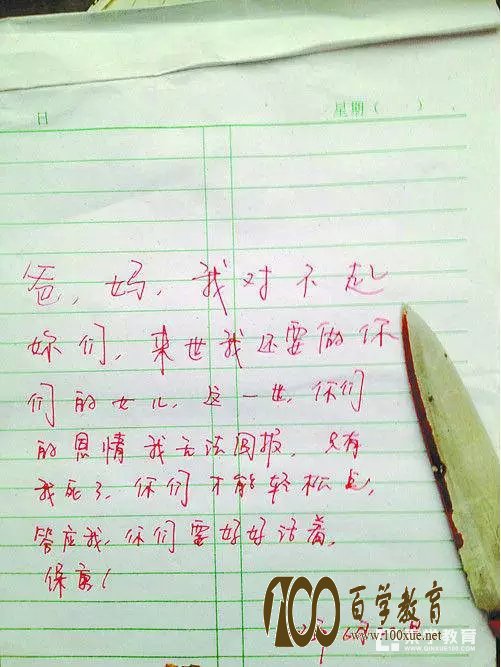 日 星期( )
爸，妈，我对不起
妳们，来世我还要做你
们的女儿，这一世，你们
的恩情我无法回报，只有
我死了，你们才能轻松点，
答应我，你们要好好活着，
保重！
100百学教育
www.100xue.net
教育
WWW.QINXUE100.COM